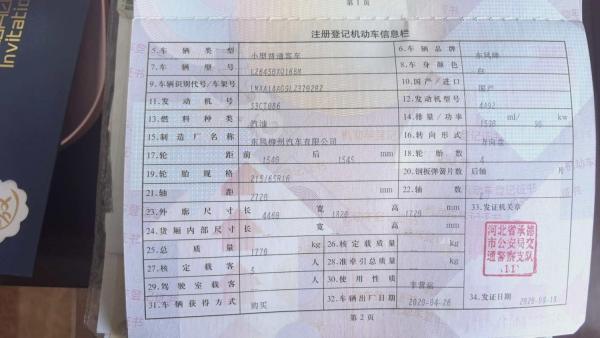 第 1 页
Invitation
注册登记机动车信息栏
5.车 辆 类 型 小型普通客车 6.车 辆 品 牌 东风牌
7.车 辆 型 号 8.车 身 颜 色 白
9.车辆识别代号/车架号 10.国 产 / 进 口 国产
11.发 动 机 号 12.发 动 机 型 号
13.燃 料 种 类 汽油 14.排 量 / 功 率 ml/ kw
15.制 造 厂 名 称 东风柳州汽车有限公司 16.转 向 形 式 方向盘
17.轮 距 前 1540 后 1545 mm 18.轮 胎 数 4
19.轮 胎 规 格 215/65R16 20.钢板弹簧片数 后轴 片
21.轴 距 2720 mm 22.轴 数
23.外 廓 尺 寸 长 4460 宽 1820 高 1720 mm 33.发证机关章
24.货 厢 内 部 尺 寸 长 宽 高 mm
25.总 质 量 1770 kg 26.核 定 载 质 量 kg
27.核 定 载 客 人 28.准 牵 引 总 质 量 kg
29.驾 驶 室 载 客 人 30.使 用 性 质 非营运
31.车 辆 获 得 方 式 购买 32.车 辆 出 厂 日 期 2020-04-26 34.发 证 日 期
河北省承德
市公安局交
通警察支队
(11)
第 2 页